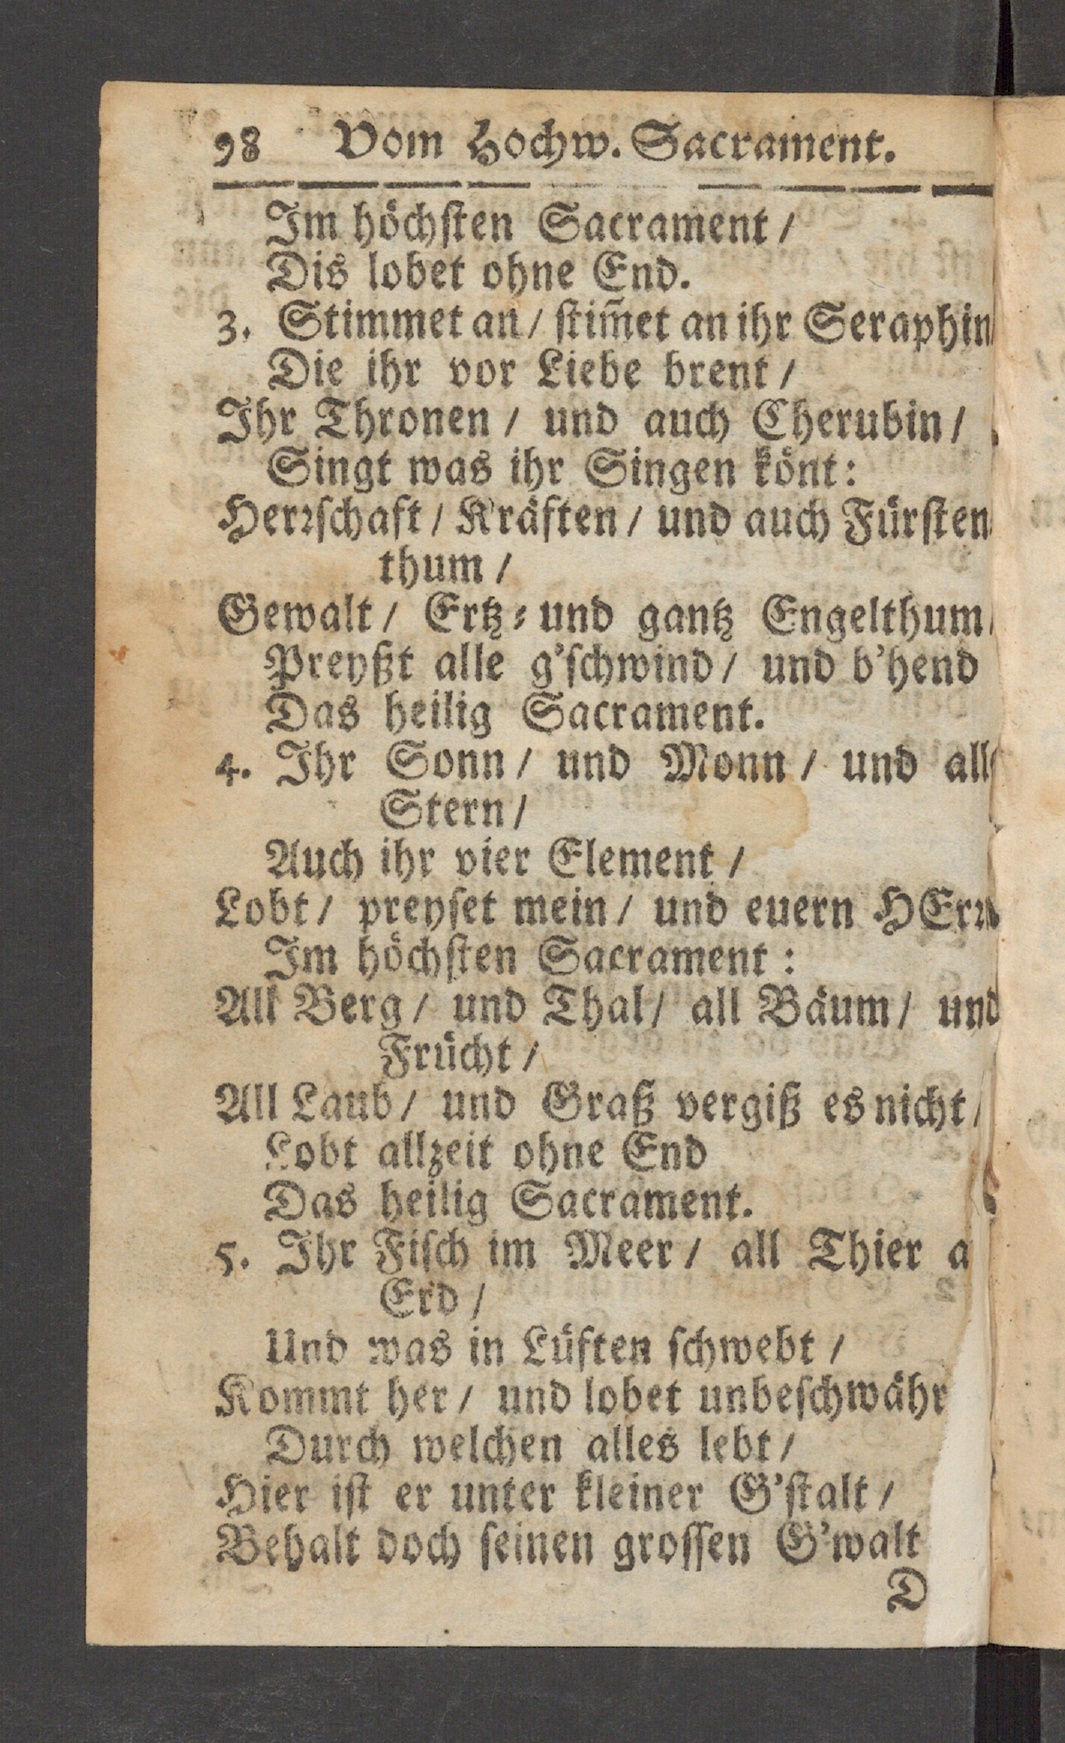 98 Vom Hochw. Sacrament.
Im höchſten Sacrament /
Dis lobet ohne End.
3. Stimmet an / ſtim̃et an ihr Seraphin
Die ihr vor Liebe brent /
Ihr Thronen / und auch Cherubin /
Singt was ihr Singen könt:
Herꝛſchaft / Kräften / und auch Fürſten
thum /
Gewalt / Ertz⸗ und gantz Engelthum
Preyßt alle g'ſchwind / und b'hend
Das heilig Sacrament.
4. Ihr Sonn / und Monn / und all
Stern /
Auch ihr vier Element /
Lobt / preyſet mein / und euern HErꝛ
Im höchſten Sacrament :
All Berg / und Thal / all Bäum / und
Frücht /
All Laub / und Graß vergiß es nicht /
Lobt allzeit ohne End
Das heilig Sacrament.
5. Ihr Fiſch im Meer / all Thier a
Erd /
Und was in Lüften ſchwebt /
Kommt her / und lobet unbeſchwähr
Durch welchen alles lebt /
Hier iſt er unter kleiner G'ſtalt /
Behalt doch ſeinen groſſen G'walt
D